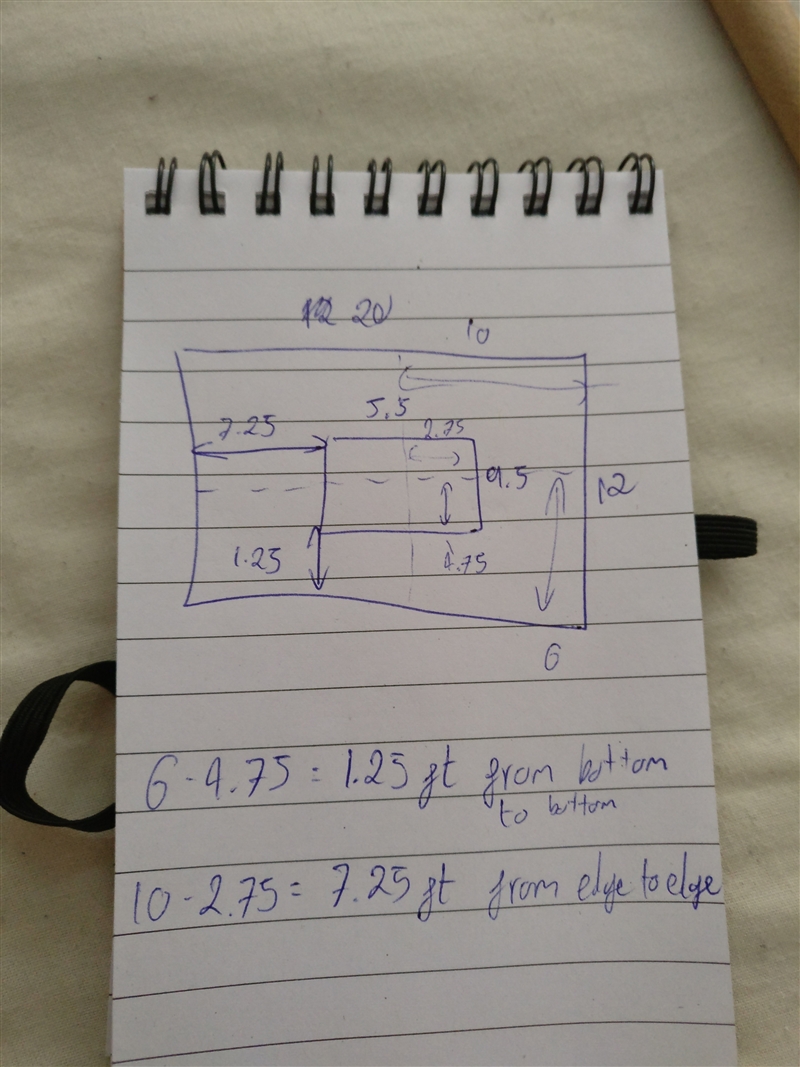 20
10
5.5
7.25
2.75
9.5
12
1.25
4.75
6
6 - 4.75 = 1.25 ft from bottom
to bottom
10 - 2.75 = 7.25 ft from edge to edge